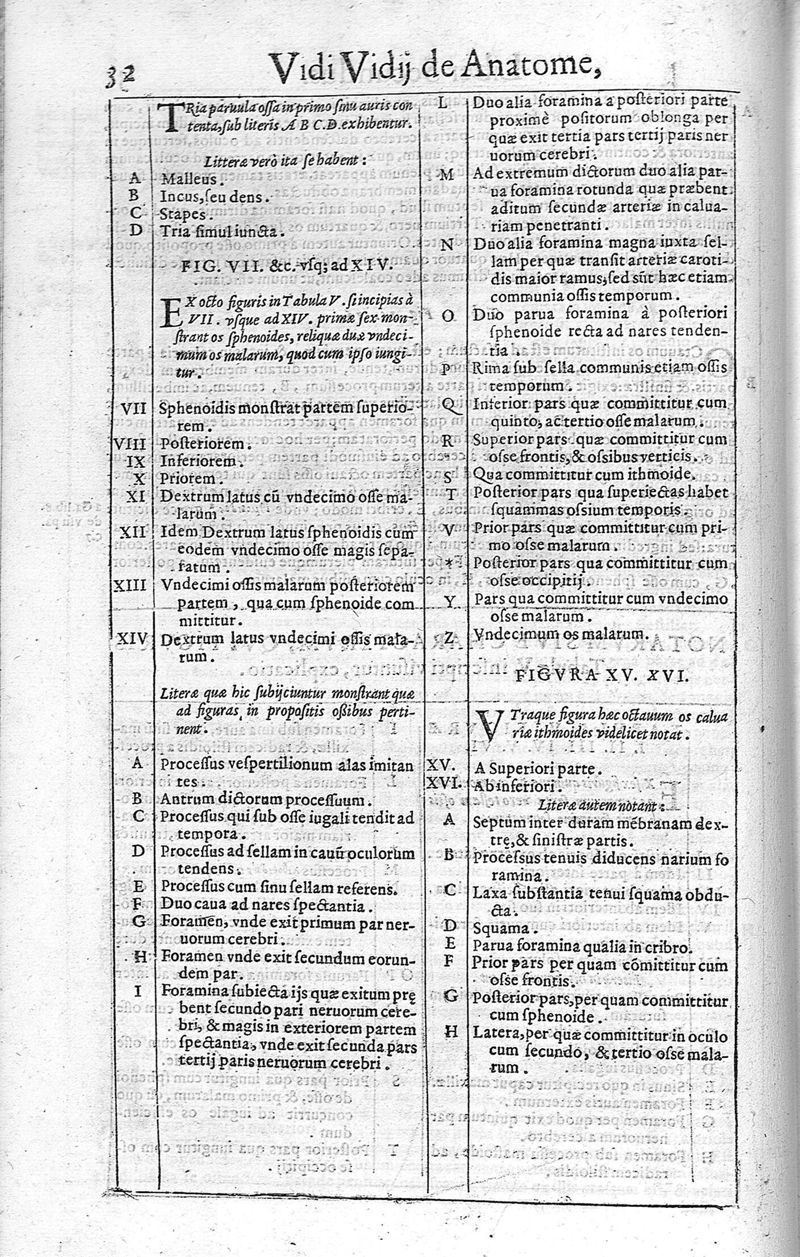 32 Vidi Vidij de Anatome,
TRia paruula ossa in primo sinu auris con
tenta, sub literis A B C D. exhibentur.
Litteræ verò ita se habent:
A Malleus.
B Incus, seu dens.
C Stapes.
D Tria simul iuncta.
FIG. VII. &c. vsq; ad XIV.
EX octo figuris in Tabula V. si incipias à
VII. vsque ad XIV. primæ sex mon-
strant os sphenoides, reliquæ duæ vndeci-
mum os malarum, quod cum ipso iungi-
tur.
VII Sphenoidis monstrat partem superio-
rem.
VIII Posteriorem.
IX Inferiorem.
X Priorem.
XI Dextrum latus cũ vndecimo osse ma-
larum.
XII Idem Dextrum latus sphenoidis cum
eodem vndecimo osse magis sepa-
ratum.
XIII Vndecimi ossis malarum posteriorem
partem, qua cum sphenoide com
mittitur.
XIV Dextrum latus vndecimi ossis mala-
rum.
Literæ quæ hic subijciuntur monstrant quæ
ad figuras in propositis ossibus perti-
nent.
A Processus vespertilionum alas imitan
tes.
B Antrum dictorum processuum.
C Processus qui sub osse iugali tendit ad
tempora.
D Processus ad sellam in cauũ oculorum
tendens.
E Processus cum sinu sellam referens.
F Duo caua ad nares spectantia.
G Foramen, vnde exit primum par ner-
uorum cerebri.
H Foramen vnde exit secundum eorun-
dem par.
I Foramina subiecta ijs quæ exitum prę
bent secundo pari neruorum cere-
bri, & magis in exteriorem partem
spectantia, vnde exit secunda pars
tertij paris neruorum cerebri.
L Duo alia foramina a posteriori parte
proximè positorum oblonga per
quæ exit tertia pars tertij paris ner
uorum cerebri.
M Ad extremum dictorum duo alia par-
ua foramina rotunda quæ præbent
aditum secundæ arteriæ in calua-
riam penetranti.
N Duo alia foramina magna iuxta sel-
lam per quæ transit arteriæ caroti-
dis maior ramus, sed sũt hæc etiam
communia ossis temporum.
O Duo parua foramina à posteriori
sphenoide recta ad nares tenden-
tia.
P Rima sub sella communis etiam ossis
temporum.
Q Inferior pars quæ committitur cum
quinto, ac tertio osse malarum.
R Superior pars quæ committitur cum
osse frontis, & ossibus verticis.
S Qua committitur cum ithmoide.
T Posterior pars qua superiectas habet
squammas ossium temporis.
V Prior pars quæ committitur cum pri-
mo osse malarum.
* Posterior pars qua committitur cum
osse occipitij.
Y Pars qua committitur cum vndecimo
osse malarum.
Z Vndecimum os malarum.
FIGVRA XV. XVI.
VTraque figura hæc octauum os calua
riæ ithmoides videlicet notat.
XV. A Superiori parte.
XVI. Ab inferiori.
Literæ autem notant:
A Septum inter duram mẽbranam dex-
trę, & sinistræ partis.
B Processus tenuis diducens narium fo
ramina.
C Laxa substantia tenui squama obdu-
cta.
D Squama.
E Parua foramina qualia in cribro.
F Prior pars per quam cõmittitur cum
osse frontis.
G Posterior pars, per quam committitur
cum sphenoide.
H Latera, per quæ committitur in oculo
cum secundo, & tertio osse mala-
rum.